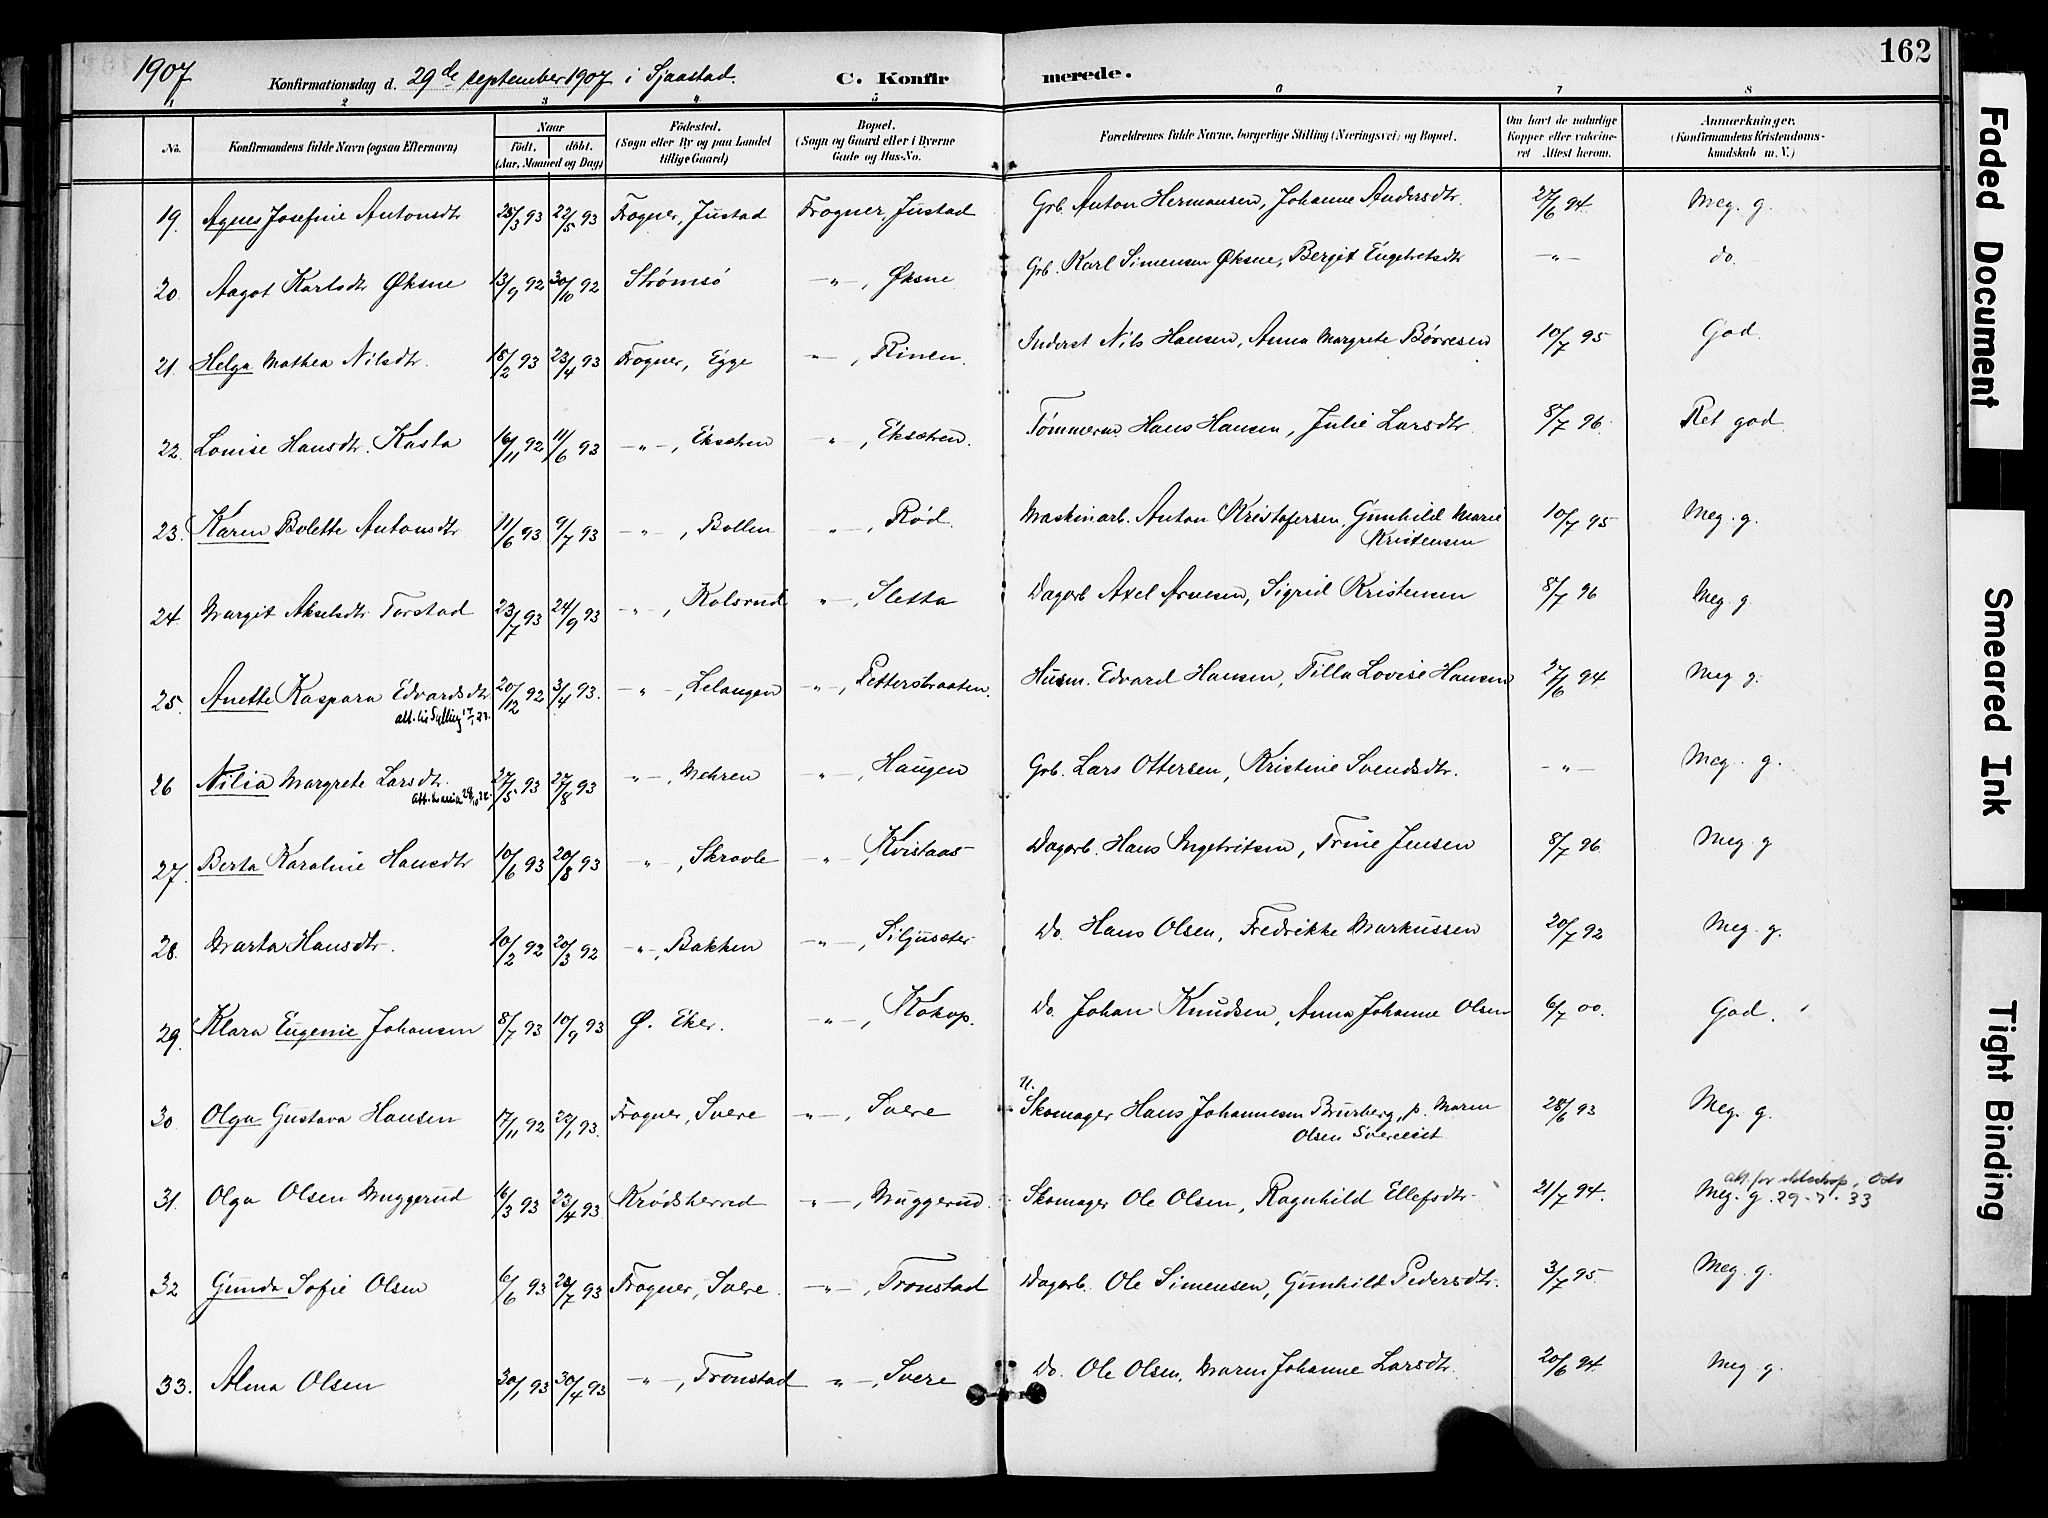 162
1907
Konfirmationsdag d. 29de september 1907 i Sjaastad. C. Konfirmerede.
1 2 3 4 5 6 7 8
No. Konfirmandens fulde Navn (ogsaa Efternavn) Naar født, døbt. (Aar, Maaned og Dag) Fødested. (Sogn eller By og paa Landet tillige Gaard) Bopæl. (Sogn og Gaard eller i Byerne Gade og Hus-No. Forældrenes fulde Navne, borgerlige Stilling (Næringsvei) og Bopæl. Om havt de naturlige Kopper eller vaccineret Attest herom. Anmærkninger. (Konfirmandens Kristendomskundskab m. V.)
19. Agnes Josefine Antonsdtr 28/3 93 22/5 93 Frogner, Justad Frogner, Justad Grb. Anton Hermansen, Johanne Andersdtr. 27/6 94. Meg. g.
20. Aagot Karlsdtr Øksne 13/9 92 30/10 92 Strømsö -"-, Øksne Grb. Karl Simensen Øksne, Bergit Engebretsdtr -"- do.
21. Helga Mathea Nilsdtr. 18/2 93 23/4 93 Frogner, Egge -"-, Rinen. Inderst Nils Hansen, Anna Margrete Børresen 10/7 95 God.
22. Louise Hansdtr. Kasta 16/11 92 11/6 93 -"-, Eksæten -"-, Eksæten. Tømmerm. Hans Hansen, Julie Larsdtr. 8/7 96. Ret god.
23. Karen Bolette Antonsdtr 11/6 93 9/7 93 -"-, Bollen -"-, Rød. Maskinarb. Anton Kristofersen, Gunhild Marie Kristensen 10/7 95 Meg. g.
24. Margit Akselsdtr Torstad 23/7 93 24/9 93 -"-, Kolsrud -"-, Sletta Dagarb Axel Arnesen, Sigrid Kristensen 8/7 96 Meg. g.
25. Anette Kaspara Edvardsdtr 20/12 92 3/4 93. -"-, Lelangen -"-, Petterstraaten. Husm. Edvard Hansen, Tilla Lovise Hansen 27/6 94. Meg g.
26 Nilia Margrete Larsdtr. 27/5 93 27/8 93 -"-, Mehren -"-, Haugen Grb. Lars Ottersen, Kristine Svendsdtr. -"- Meg. g.
27. Berta Karoline Hansdtr 10/6 93 20/8 93 -"-, Skravle -"-, Kvistaas Dagarb. Hans Ingebritsen, Trine Jensen 8/7 96. Meg. g
28. Marta Hansdtr. 10/2 92 20/3 92 -"-, Bakken -"-, Siljusæter Do. Hans Olsen, Fredrikke Markussen 20/7 92 Meg. g.
29. Klara Eugenie Johansen 8/7 93 10/9 93 Ø. Eker. -"-, Kokop. Do. Johan Knudsen, Anna Johanne Olsen 6/7 00. God.
30 Olga Gustava Hansen 17/11 92 22/1 93. Frogner, Svere -"-, Svere U. Skomager Hans Johannesen Burberg, p. Maren Olsen Svereeiet 28/6 93 Meg. g.
31. Olga Olsen Muggerud 16/3 93 23/4 93. Krødsherred -"-, Muggerud. Skomager Ole Olsen, Ragnhild Ellefsdtr. 21/7 94. Meg. g. 29-7-33
32 Gunda Sofie Olsen 6/6 93 28/7 93 Frogner, Svere. -"-, Tronstad Dagarb. Ole Simensen, Gunhild Pedersdtr. 3/7 95. Meg. g.
33. Alma Olsen 30/1 93 30/4 93 -"-, Tronstad -"-, Svere Do. Ole Olsen, Maren Johanne Larsdtr. 20/6 94. Meg g.
Faded Document
Smeared Ink
Tight Binding